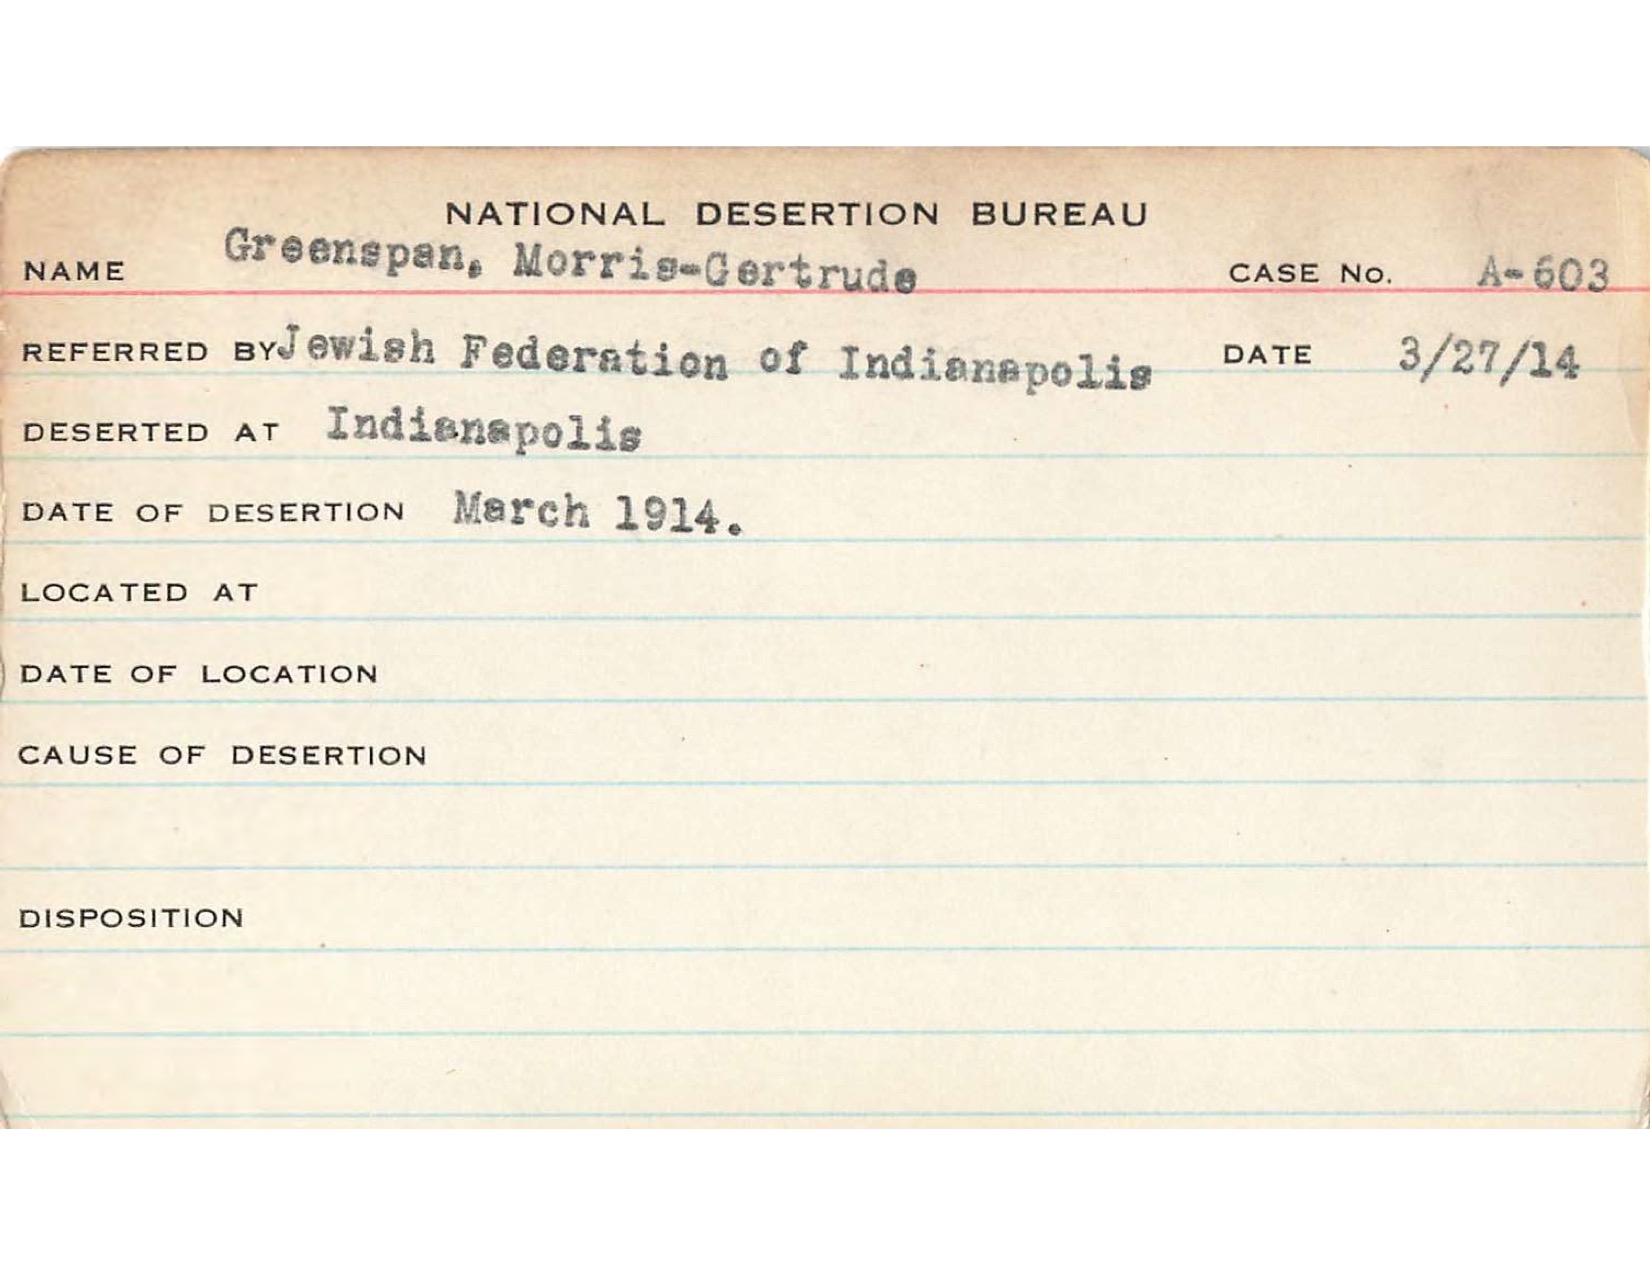 NATIONAL DESERTION BUREAU
NAME Greenspan, Morris-Gertrude CASE No. A-603
REFERRED BY Jewish Federation of Indianapolis DATE 3/27/14
DESERTED AT Indianapolis
DATE OF DESERTION March 1914.
LOCATED AT
DATE OF LOCATION
CAUSE OF DESERTION
DISPOSITION